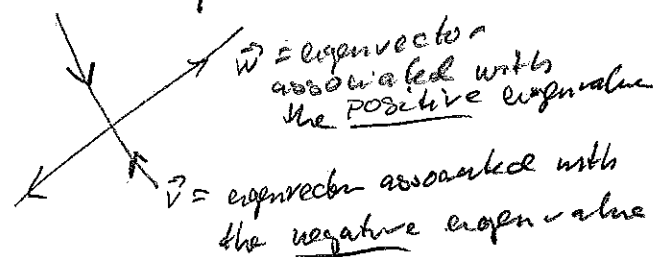 w⃗ = eigenvector
associated with
the positive eigenvalue
v⃗ = eigenvector associated with
the negative eigenvalue